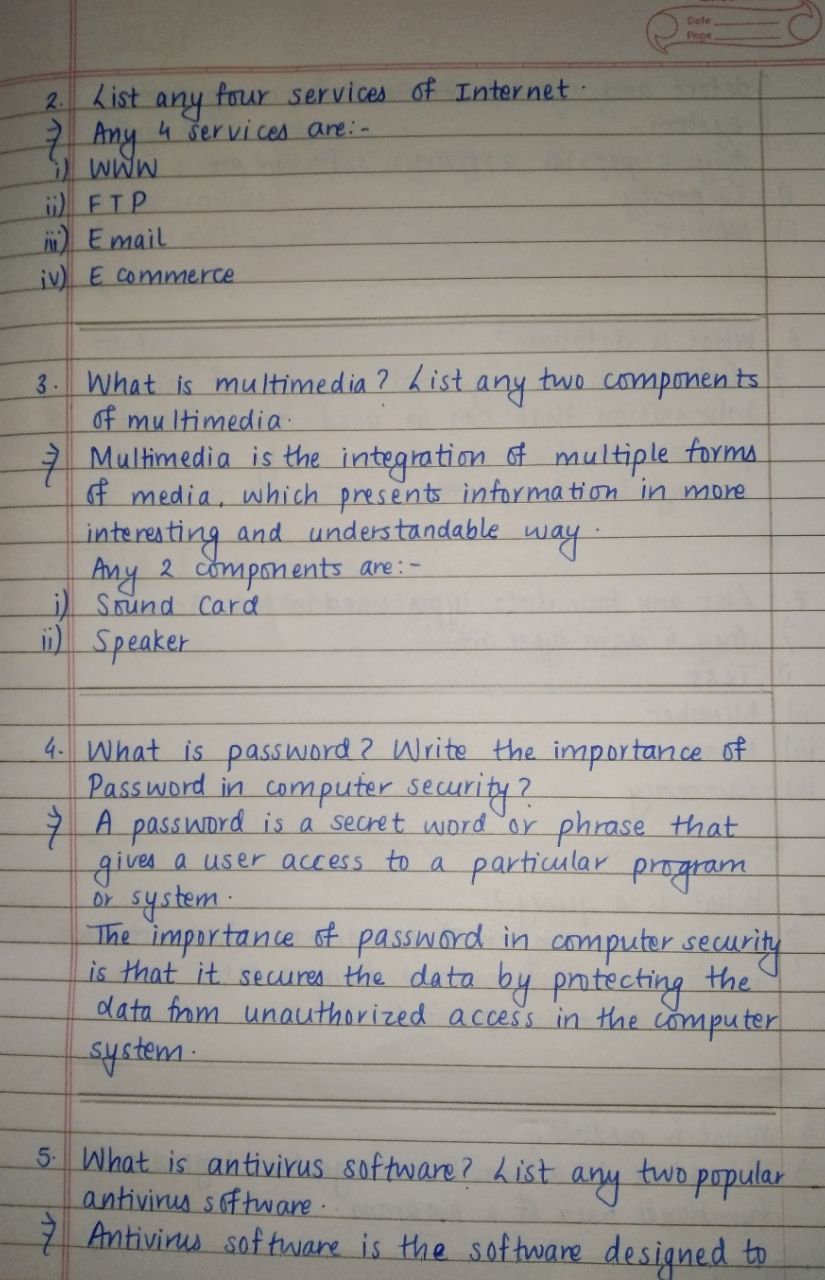 Date
Page
2. List any four services of Internet.
⇒ Any 4 services are:-
i) WWW
ii) FTP
iii) Email
iv) E commerce
3. What is multimedia? List any two components
of multimedia.
⇒ Multimedia is the integration of multiple forms
of media, which presents information in more
interesting and understandable way.
Any 2 components are:-
i) Sound Card
ii) Speaker
4. What is password? Write the importance of
Password in computer security?
⇒ A password is a secret word or phrase that
gives a user access to a particular program
or system.
The importance of password in computer security
is that it secures the data by protecting the
data from unauthorized access in the computer
system.
5. What is antivirus software? List any two popular
antivirus software.
⇒ Antivirus software is the software designed to